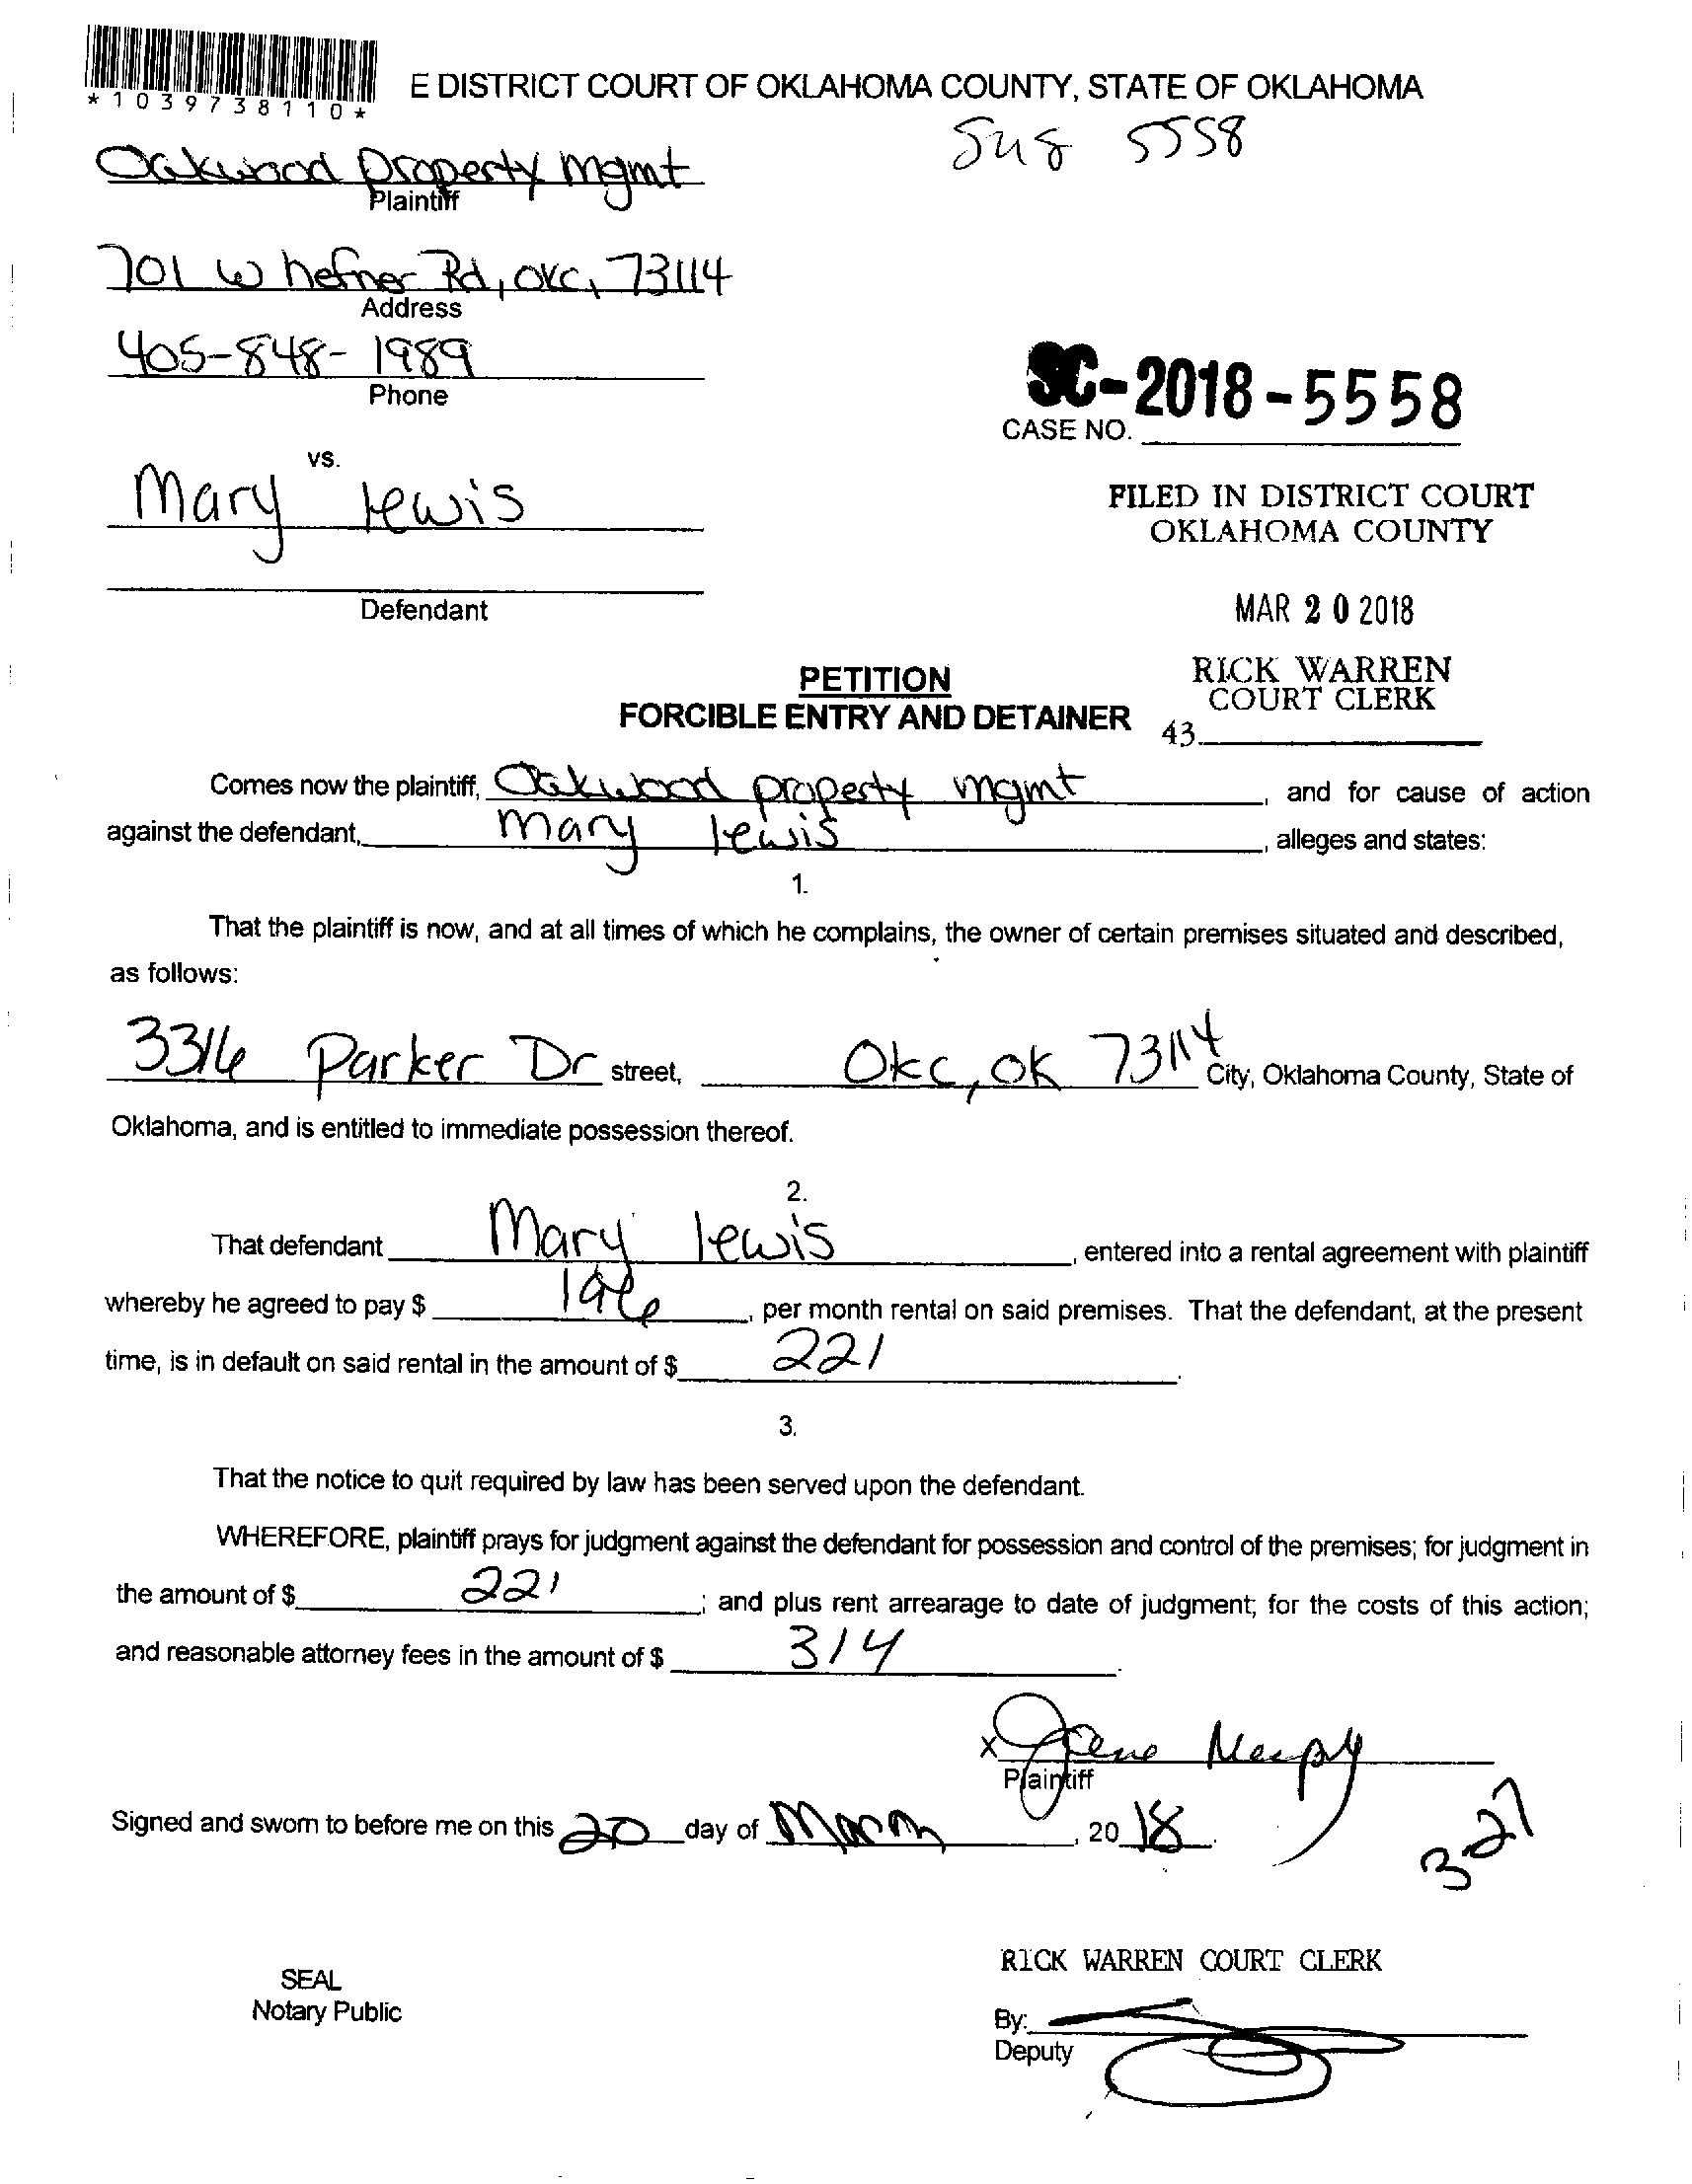 *1039738110*
E DISTRICT COURT OF OKLAHOMA COUNTY, STATE OF OKLAHOMA
5558
Oakwood Property Mgmt
Plaintiff
701 W hefner Rd, OKC, 73114
Address
405-848-1989
Phone
SC-2018-5558
CASE NO.
vs.
Mary Lewis
FILED IN DISTRICT COURT
OKLAHOMA COUNTY
Defendant
MAR 20 2018
PETITION
FORCIBLE ENTRY AND DETAINER
RICK WARREN
COURT CLERK
43
Comes now the plaintiff, Oakwood property mgmt, and for cause of action
against the defendant, Mary lewis, alleges and states:
1.
That the plaintiff is now, and at all times of which he complains, the owner of certain premises situated and described,
as follows:
3316 Parker Dr street, Okc, OK 73114 City, Oklahoma County, State of
Oklahoma, and is entitled to immediate possession thereof.
2.
That defendant Mary lewis, entered into a rental agreement with plaintiff
whereby he agreed to pay $ 196, per month rental on said premises. That the defendant, at the present
time, is in default on said rental in the amount of $ 221.
3.
That the notice to quit required by law has been served upon the defendant.
WHEREFORE, plaintiff prays for judgment against the defendant for possession and control of the premises; for judgment in
the amount of $ 221; and plus rent arrearage to date of judgment; for the costs of this action;
and reasonable attorney fees in the amount of $ 314.
X
Plaintiff
Signed and sworn to before me on this 20 day of March, 20 18.
3-27
RICK WARREN COURT CLERK
SEAL
Notary Public
By:
Deputy